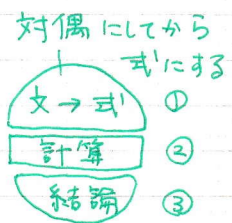 対偶にしてから
式にする
文→式 ①
計算 ②
結論 ③